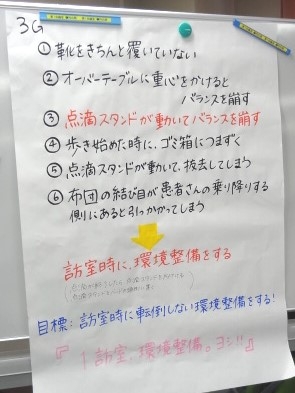 3G
① 靴をきちんと履いていない
② オーバーテーブルに重心をかけると
バランスを崩す
③ 点滴スタンドが動いてバランスを崩す
④ 歩き始めた時に、ゴミ箱につまずく
⑤ 点滴スタンドが動いて、抜去してしまう
⑥ 布団の結び目が患者さんの乗り降りする
側にあると引っかかってしまう
訪室時に、環境整備をする
目標：訪室時に転倒しない環境整備をする!
『1訪室、環境整備。ヨシ!!』